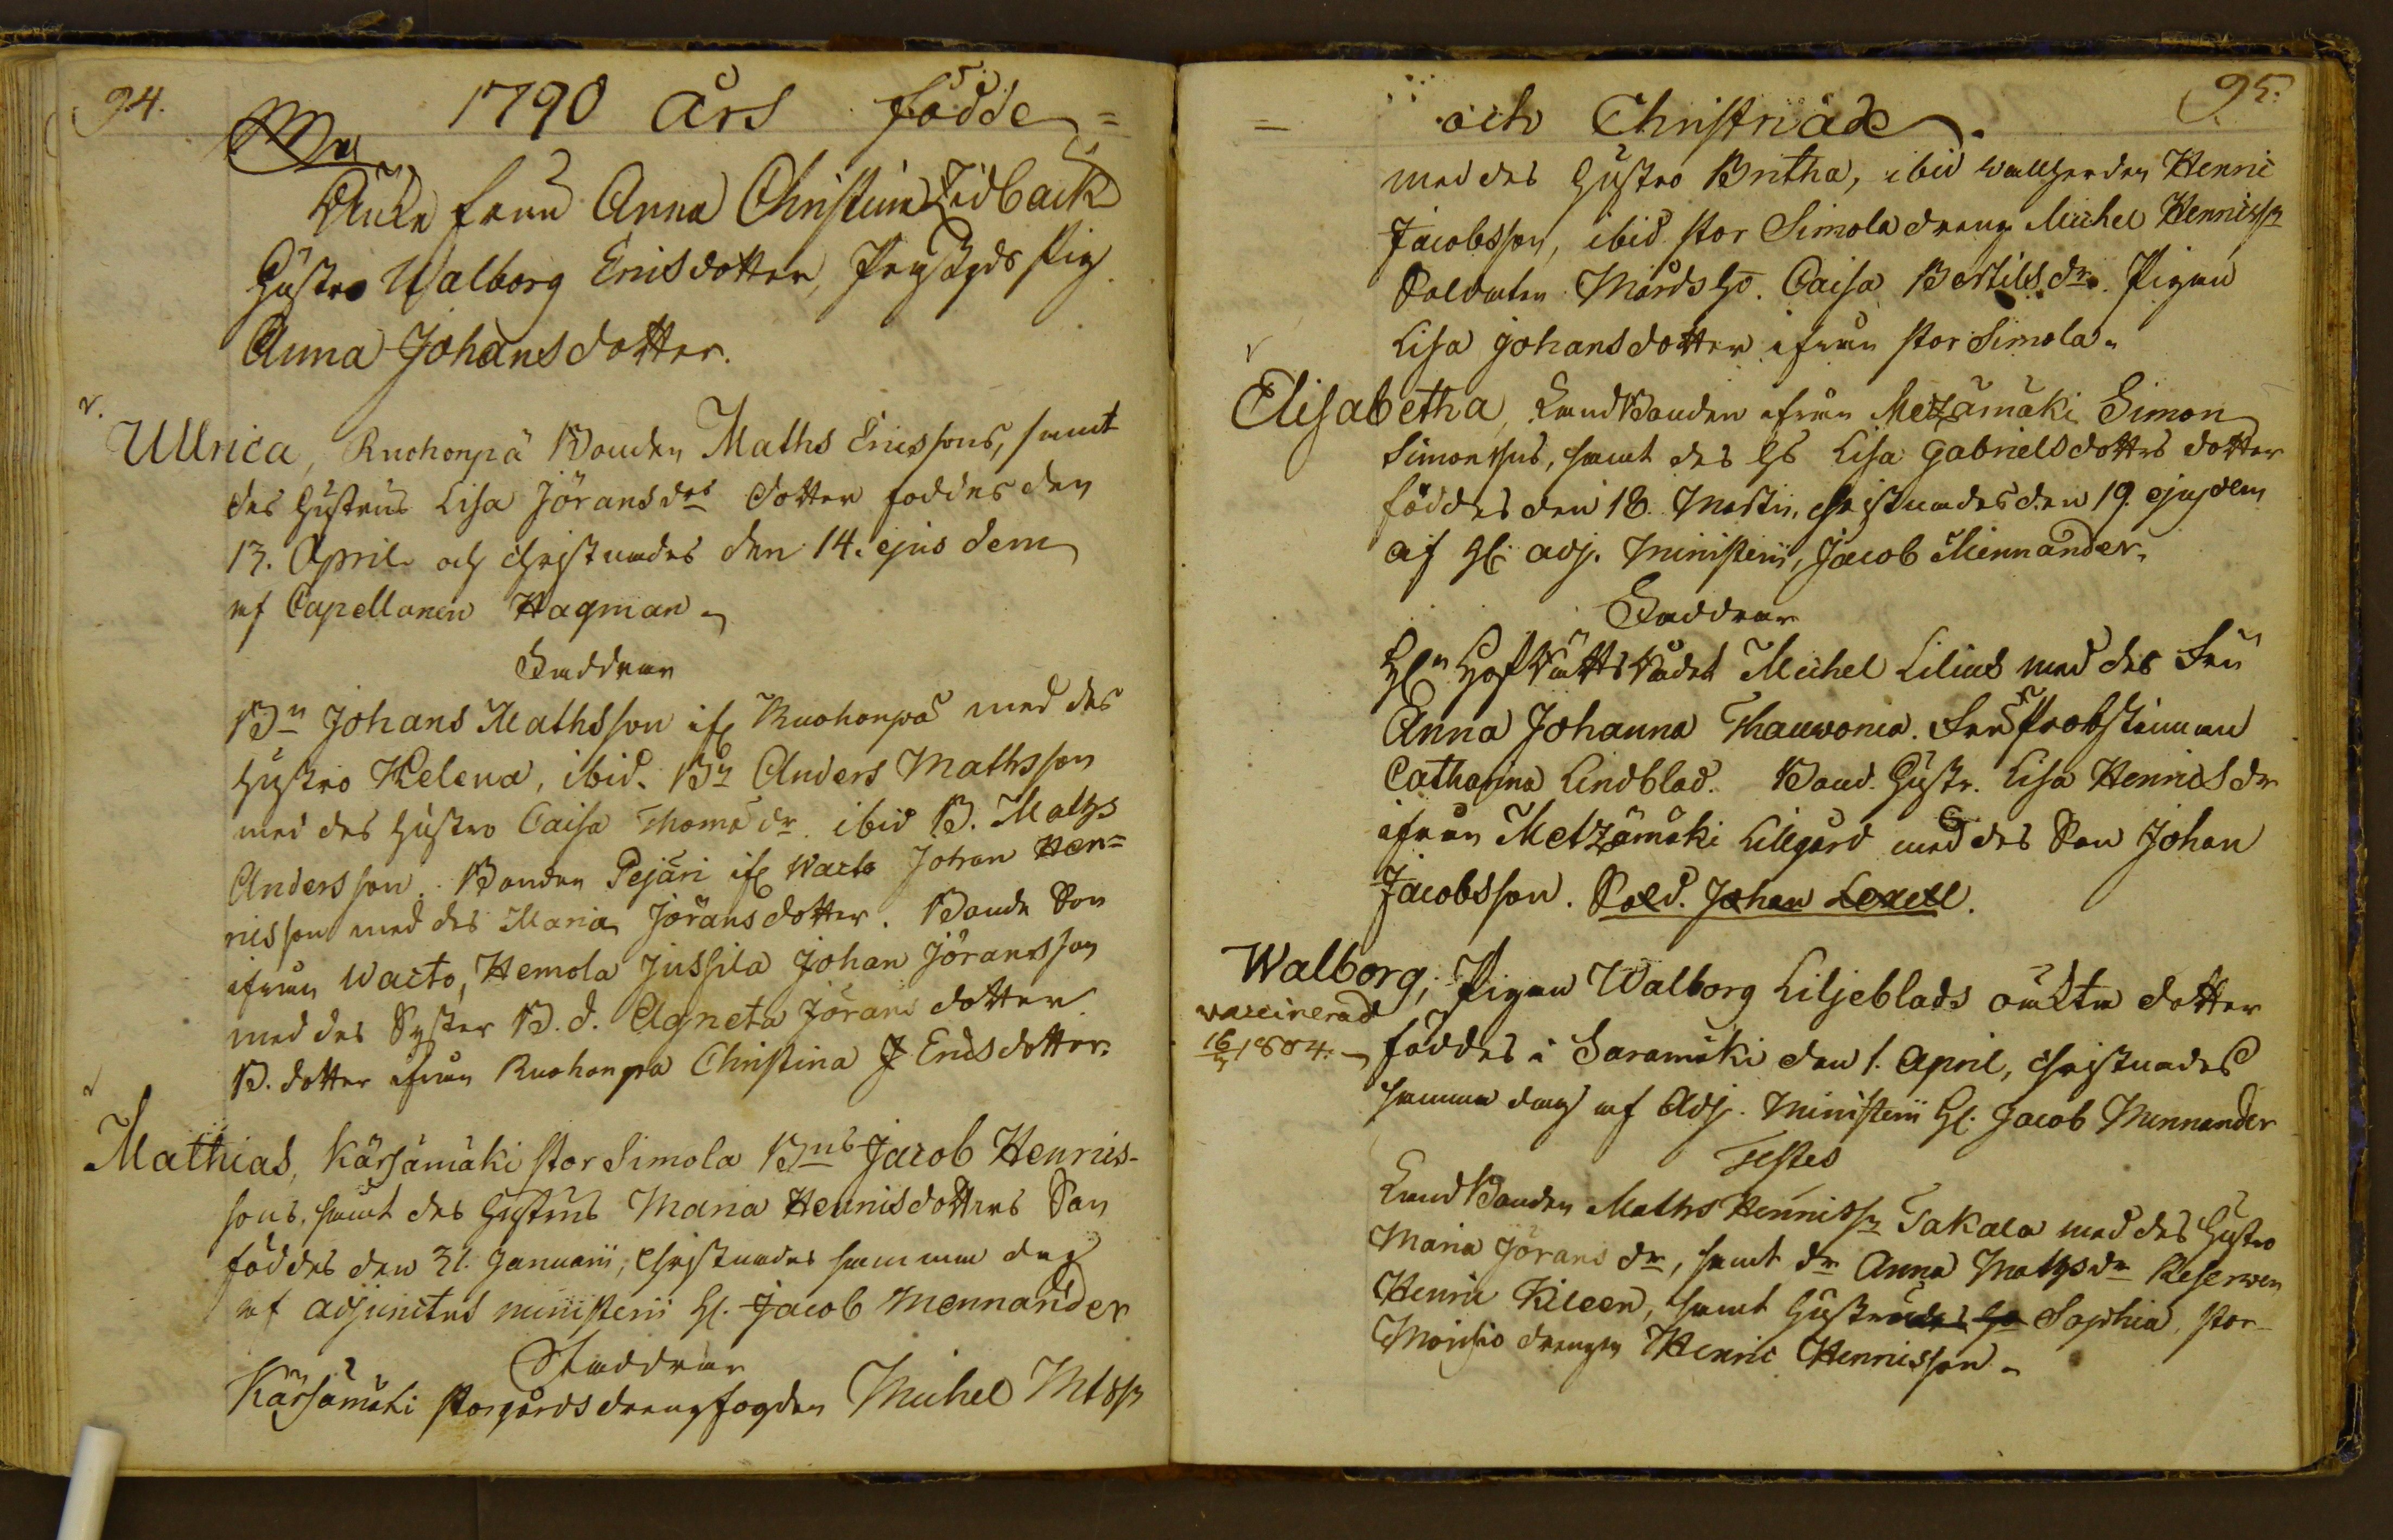 94.
1790 Års födde =
Enka frun Anna Christina Zidbäck
Hustro Walborg Ericsdotter, Pig
Anna Johansdotter.
v.
Ullrica, Ruohonpä Bonden Maths Ericssons, samt
des Hustrus Lisa Jöransdrs dotter föddes den
13. April och christnades den 14. ejus dem
af Capellanen Hagman
Faddrar
Bn Johans Mathsson if Ruohonpä med des
Hustro Helena, ibid. Bn Anders Mathsson
med des Hustro Caisa Thoma dr ibid B. Maths
Andersson. Bonden Pejari if Waito Johan Hen=
ricsson med des Maria Jöransdotter. Bonde Son
ifrån Waito, Hemola Jussila Johan Jöransson
med des Syster B. d. Agneta Jörans dotter
B. dotter ifrån Ruohonpä Christina J Ericsdotter.
Mathias, Kärsämäki stor Simola Bns Jacob Henrics-
sons, samt des Hustrus Maria Henricsdotters Son
föddes den 31. Januarii, christnades samma dag
af adjunctus ministerii H. Jacob Mennander
Faddrar
Kärsämäki storgårds drengfogden Michel Mtssn
95.
= och Christnade.
med des Hustro Britha, ibid Henric
Jacobsson, ibid stor Simola dreng Michel Henricssn
Soldaten Mårds Ho. Caisa Bertilsdr. Pigan
Lisa Johansdotter ifrån stor Simola.
v
Elisabetha, Landbonden ifrån Metzämäki Simon
Simonssons, samt des Hs Lisa Gabrielsdotters dotter
föddes den 18. Martii, christnades den 19. ejusdem
af H. adj. Ministerii, Jacob Mennander.
Faddrar
Hn HofRättsRådet Michel Lilius med des Fru
Anna Johanna Thauvonia. Fru Probstinnan
Catharina Lindblad. Bond. Hustr. Lisa Henricsdr
ifrån Metzämäki Lillgård med des Son Johan
Jacobsson. Sold. Johan Lexell.
Walborg, Pigan Walborg Liljeblads oäkta dotter
vaccinerad
16/5 1804.
föddes i Saramäki den 1. April, christnades
samma dag af Adj. Ministerii H. Jacob Mennander
Testes
Landbonden Maths Henricssn Takala med des Hustro
Maria Jörans dr, samt dr Anna Mathsdr Reserven
Henric Kileen, samt Hustro Sophia, stor
Moisio drengen Henric Henricsson.